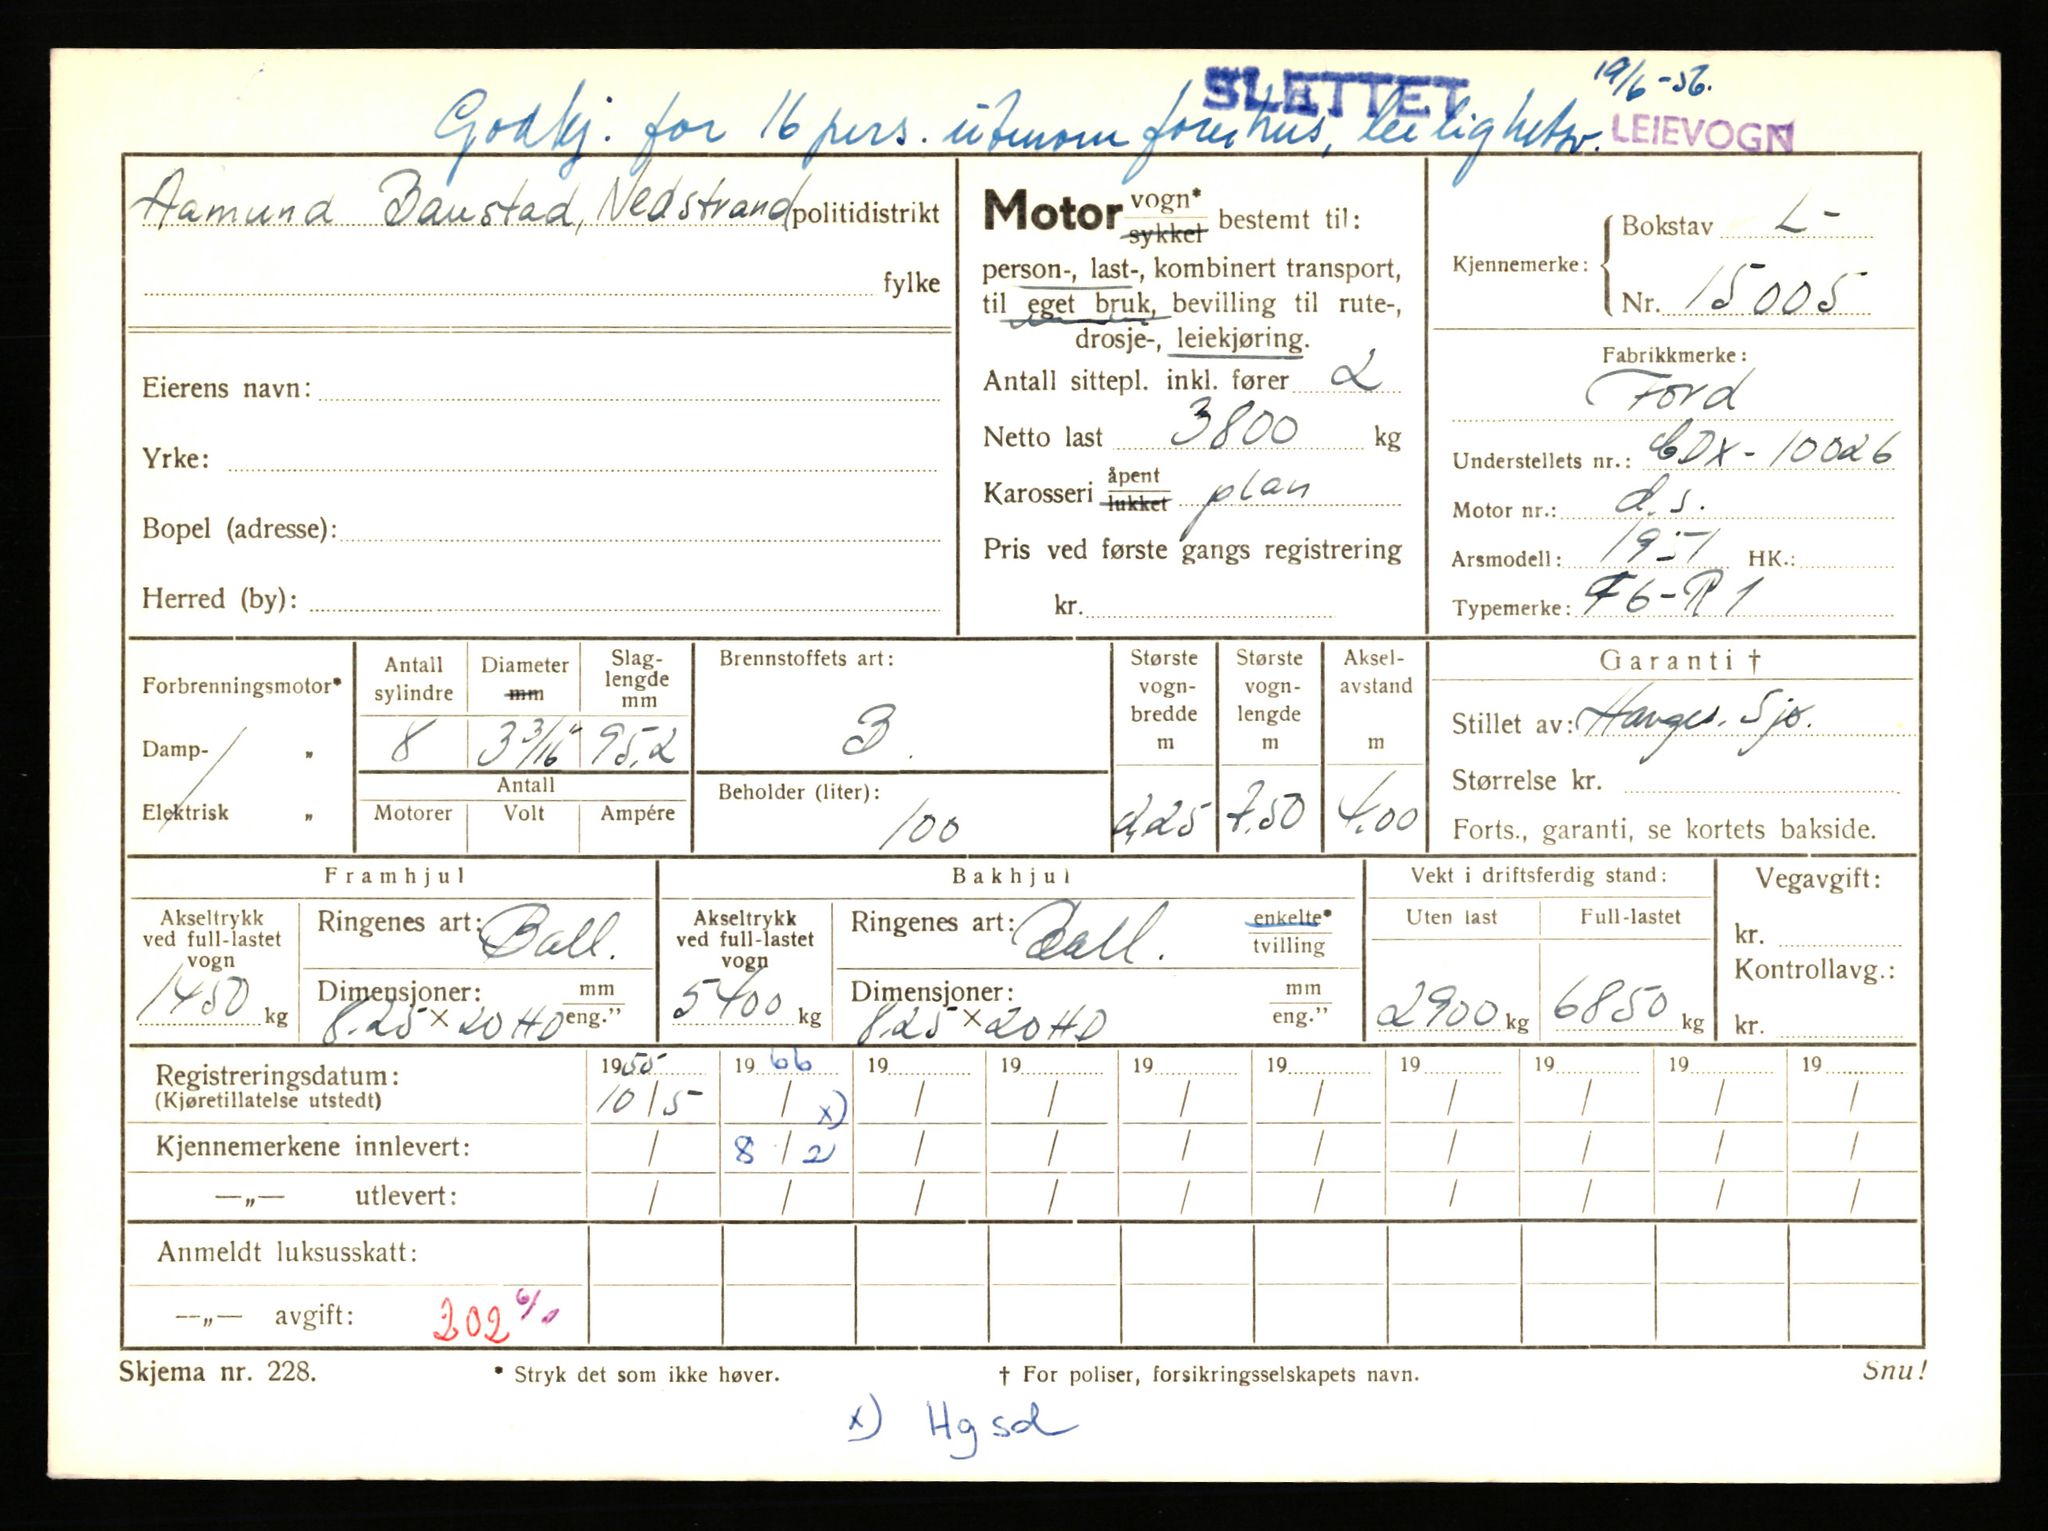 SLETTET 19/6-56.
Godkj. for 16 pers. utenom førerhus, leilighetsv. LEIEVOGN
Aamund Baustad, Nedstrand politidistrikt
fylke
Eierens navn:
Yrke:
Bopel (adresse):
Herred (by):
Motor vogn* sykkel bestemt til:
person-, last-, kombinert transport,
til eget bruk, bevilling til rute-,
drosje-, leiekjøring.
Antall sittepl. inkl. fører 2
Netto last 3800 kg
Karosseri åpent lukket plan
Pris ved første gangs registrering
kr.
Kjennemerke: Bokstav L-
Nr. 15005
Fabrikkmerke:
Ford
Understellets nr.: CDX-10026
Motor nr.: d.s.
Arsmodell: 1951 HK.:
Typemerke: F6-R1
Forbrenningsmotor*
Damp- „
Elektrisk „
Antall sylindre 8
Diameter mm 3 3/16"
Slaglengde mm 95,2
Antall
Motorer Volt Ampére
Brennstoffets art:
B.
Beholder (liter):
100
Største vognbredde m 2,25
Største vognlengde m 7.50
Akselavstand m 4,00
Garanti †
Stillet av: Hauges. Sjø.
Størrelse kr.
Forts., garanti, se kortets bakside.
Framhjul
Akseltrykk ved full-lastet vogn 1450 kg
Ringenes art: Ball.
Dimensjoner: mm eng."
8.25 x 20 HD
Bakhjul
Akseltrykk ved full-lastet vogn 5400 kg
Ringenes art: Ball. enkelte* tvilling
Dimensjoner: mm eng."
8.25 x 20 HD
Vekt i driftsferdig stand:
Uten last Full-lastet
2900 kg 6850 kg
Vegavgift:
kr.
Kontrollavg.:
kr.
Registreringsdatum: 1955 1966 19 19 19 19 19 19 19 19
(Kjøretillatelse utstedt) 10/5 / x) / / / / / / / /
Kjennemerkene innlevert: / 8/2 / / / / / / / /
—„— utlevert: / / / / / / / / / /
Anmeldt luksusskatt:
—„— avgift: 202
Skjema nr. 228. * Stryk det som ikke høver. † For poliser, forsikringsselskapets navn. Snu!
x) Hgsd